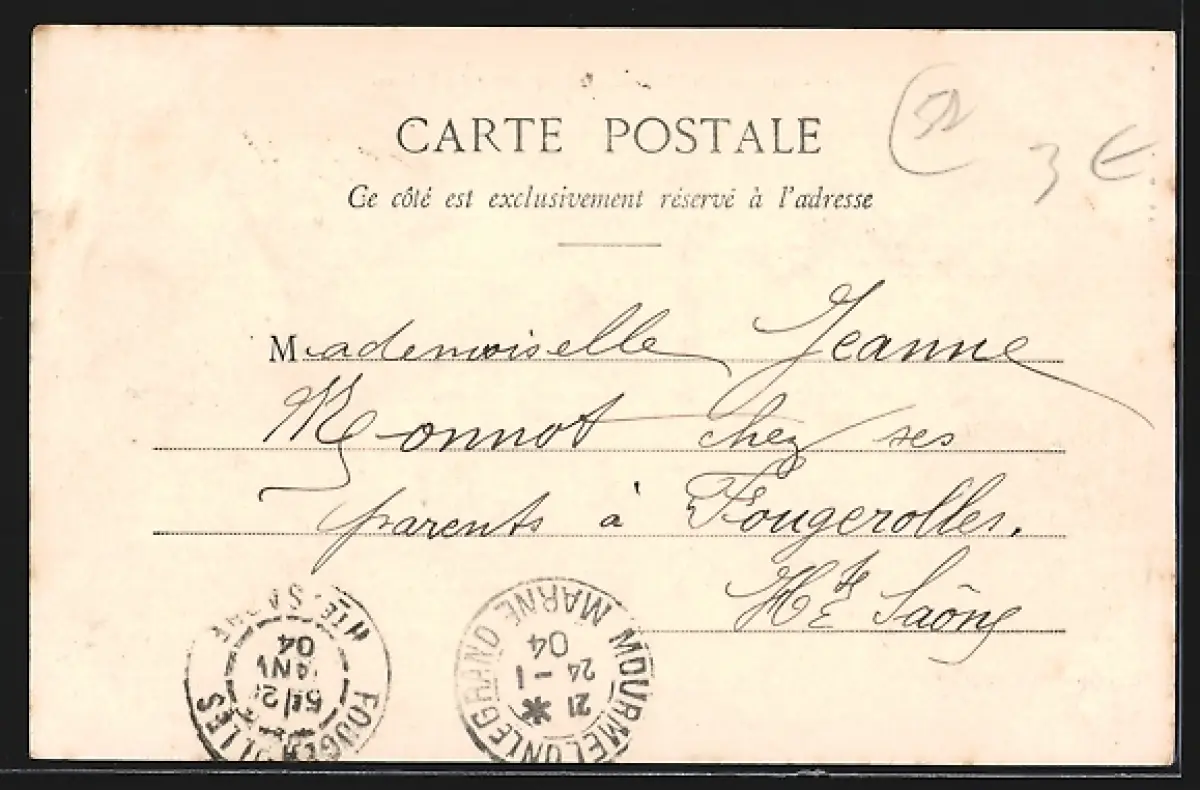 CARTE POSTALE
Ce côté est exclusivement réservé à l'adresse
3 €
Mademoiselle Jeanne
Monnot chez ses
parents à Fougerolles.
Hte Saône
FOUGEROLLES HTE-SAONE
04
MOURMELON LE GRAND MARNE
21 *
24 - 1
04